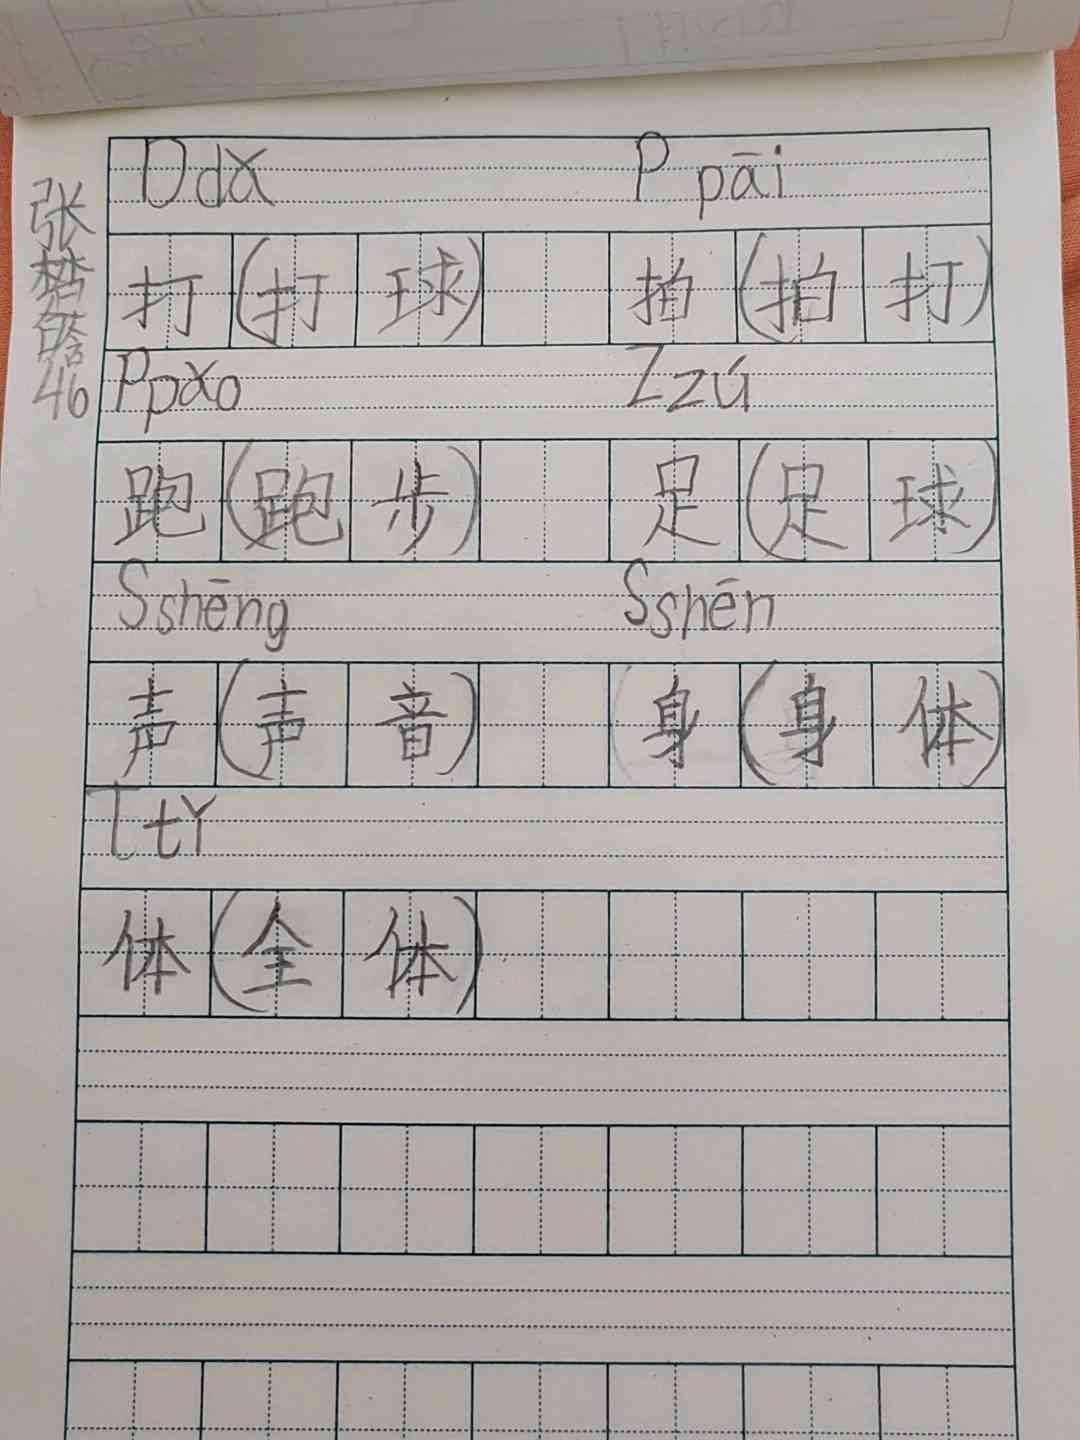 D dǎ P pāi
打(打球) 拍(拍打)
P pǎo Z zú
跑(跑步) 足(足球)
S shēng S shēn
声(声音) 身(身体)
T tǐ
体(全体)
张
46